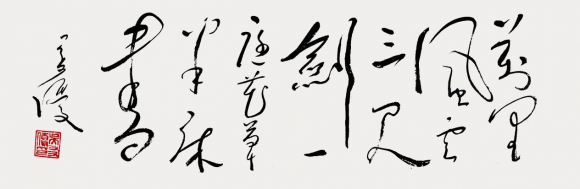 萬里
風雲
三尺
劍一
庭花草
半床
書